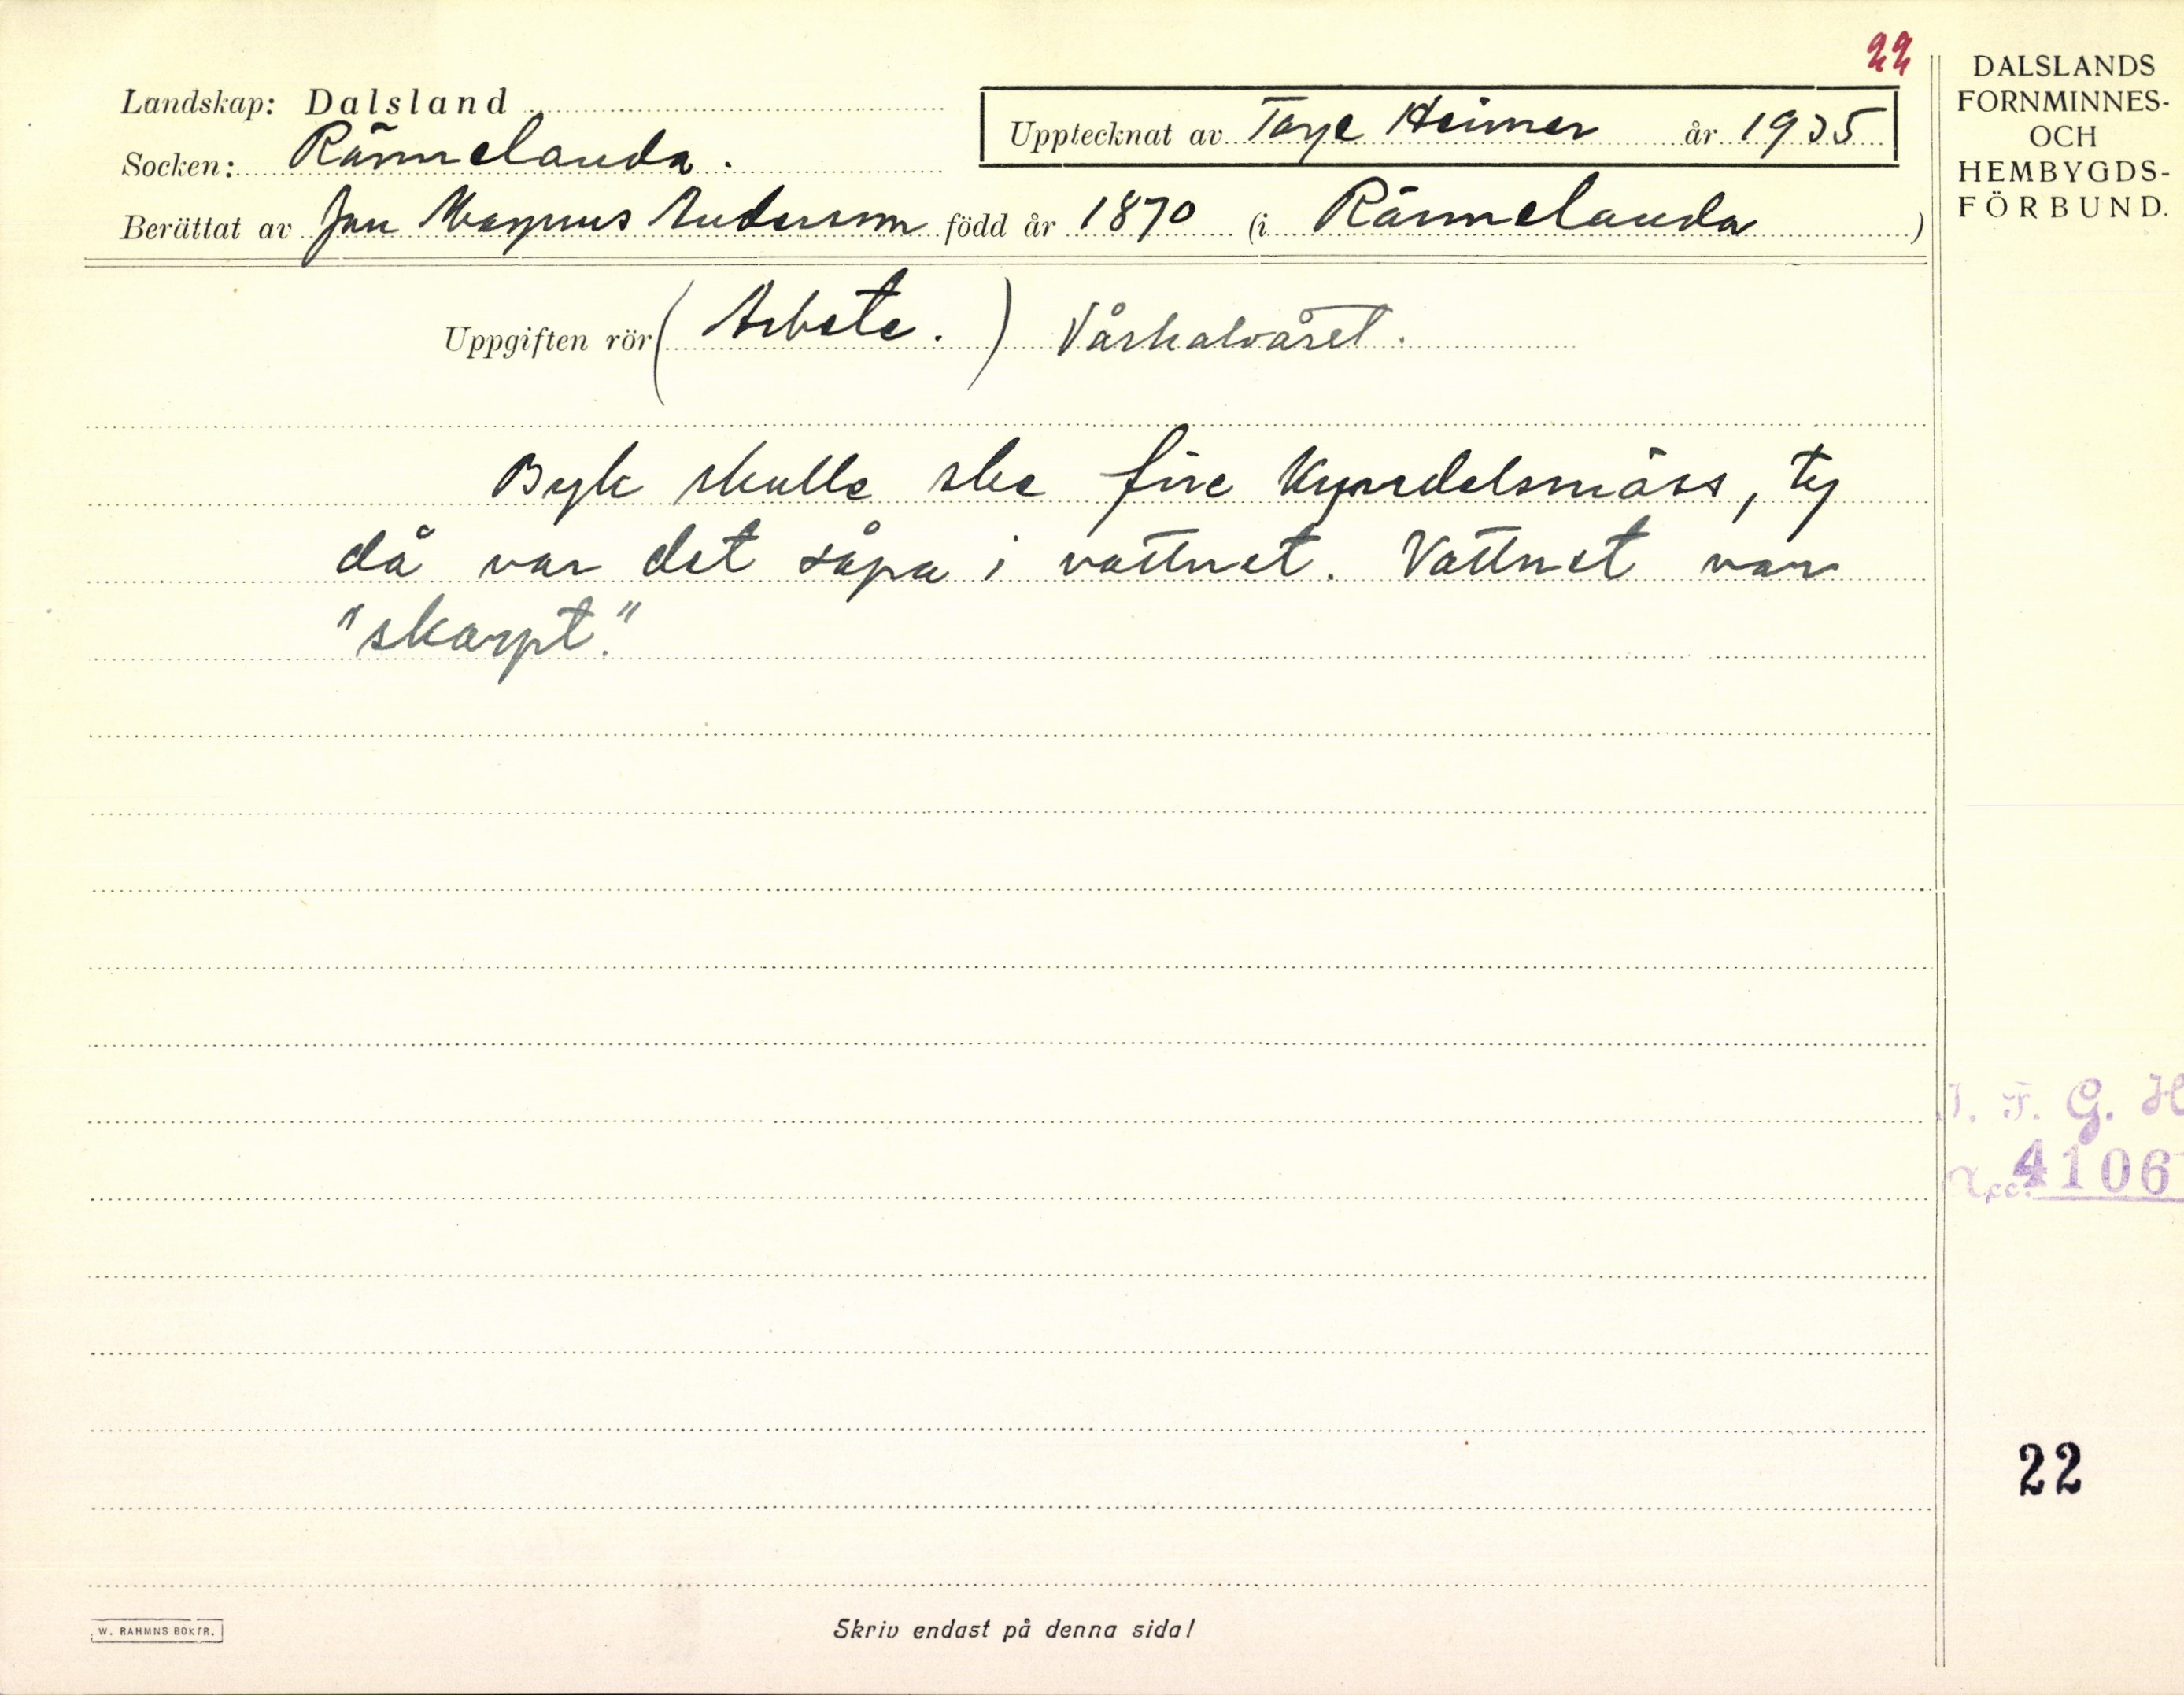 22
Landskap: Dalsland
Socken: Rännelanda.
Upptecknat av Tage Heimer år 1935
Berättat av Jan Magnus Andersson född år 1870 (i Rännelanda)
Uppgiften rör (Arbete.) Vårhalvåret.
Byk skulle ske före Kyndelsmäss, ty
då var det såpa i vattnet. Vattnet var
"skarpt."
DALSLANDS
FORNMINNES-
OCH
HEMBYGDS-
FÖRBUND.
I. F. G. H
Acc. 4106
22
W. RAHMNS BOKTR.
Skriv endast på denna sida!